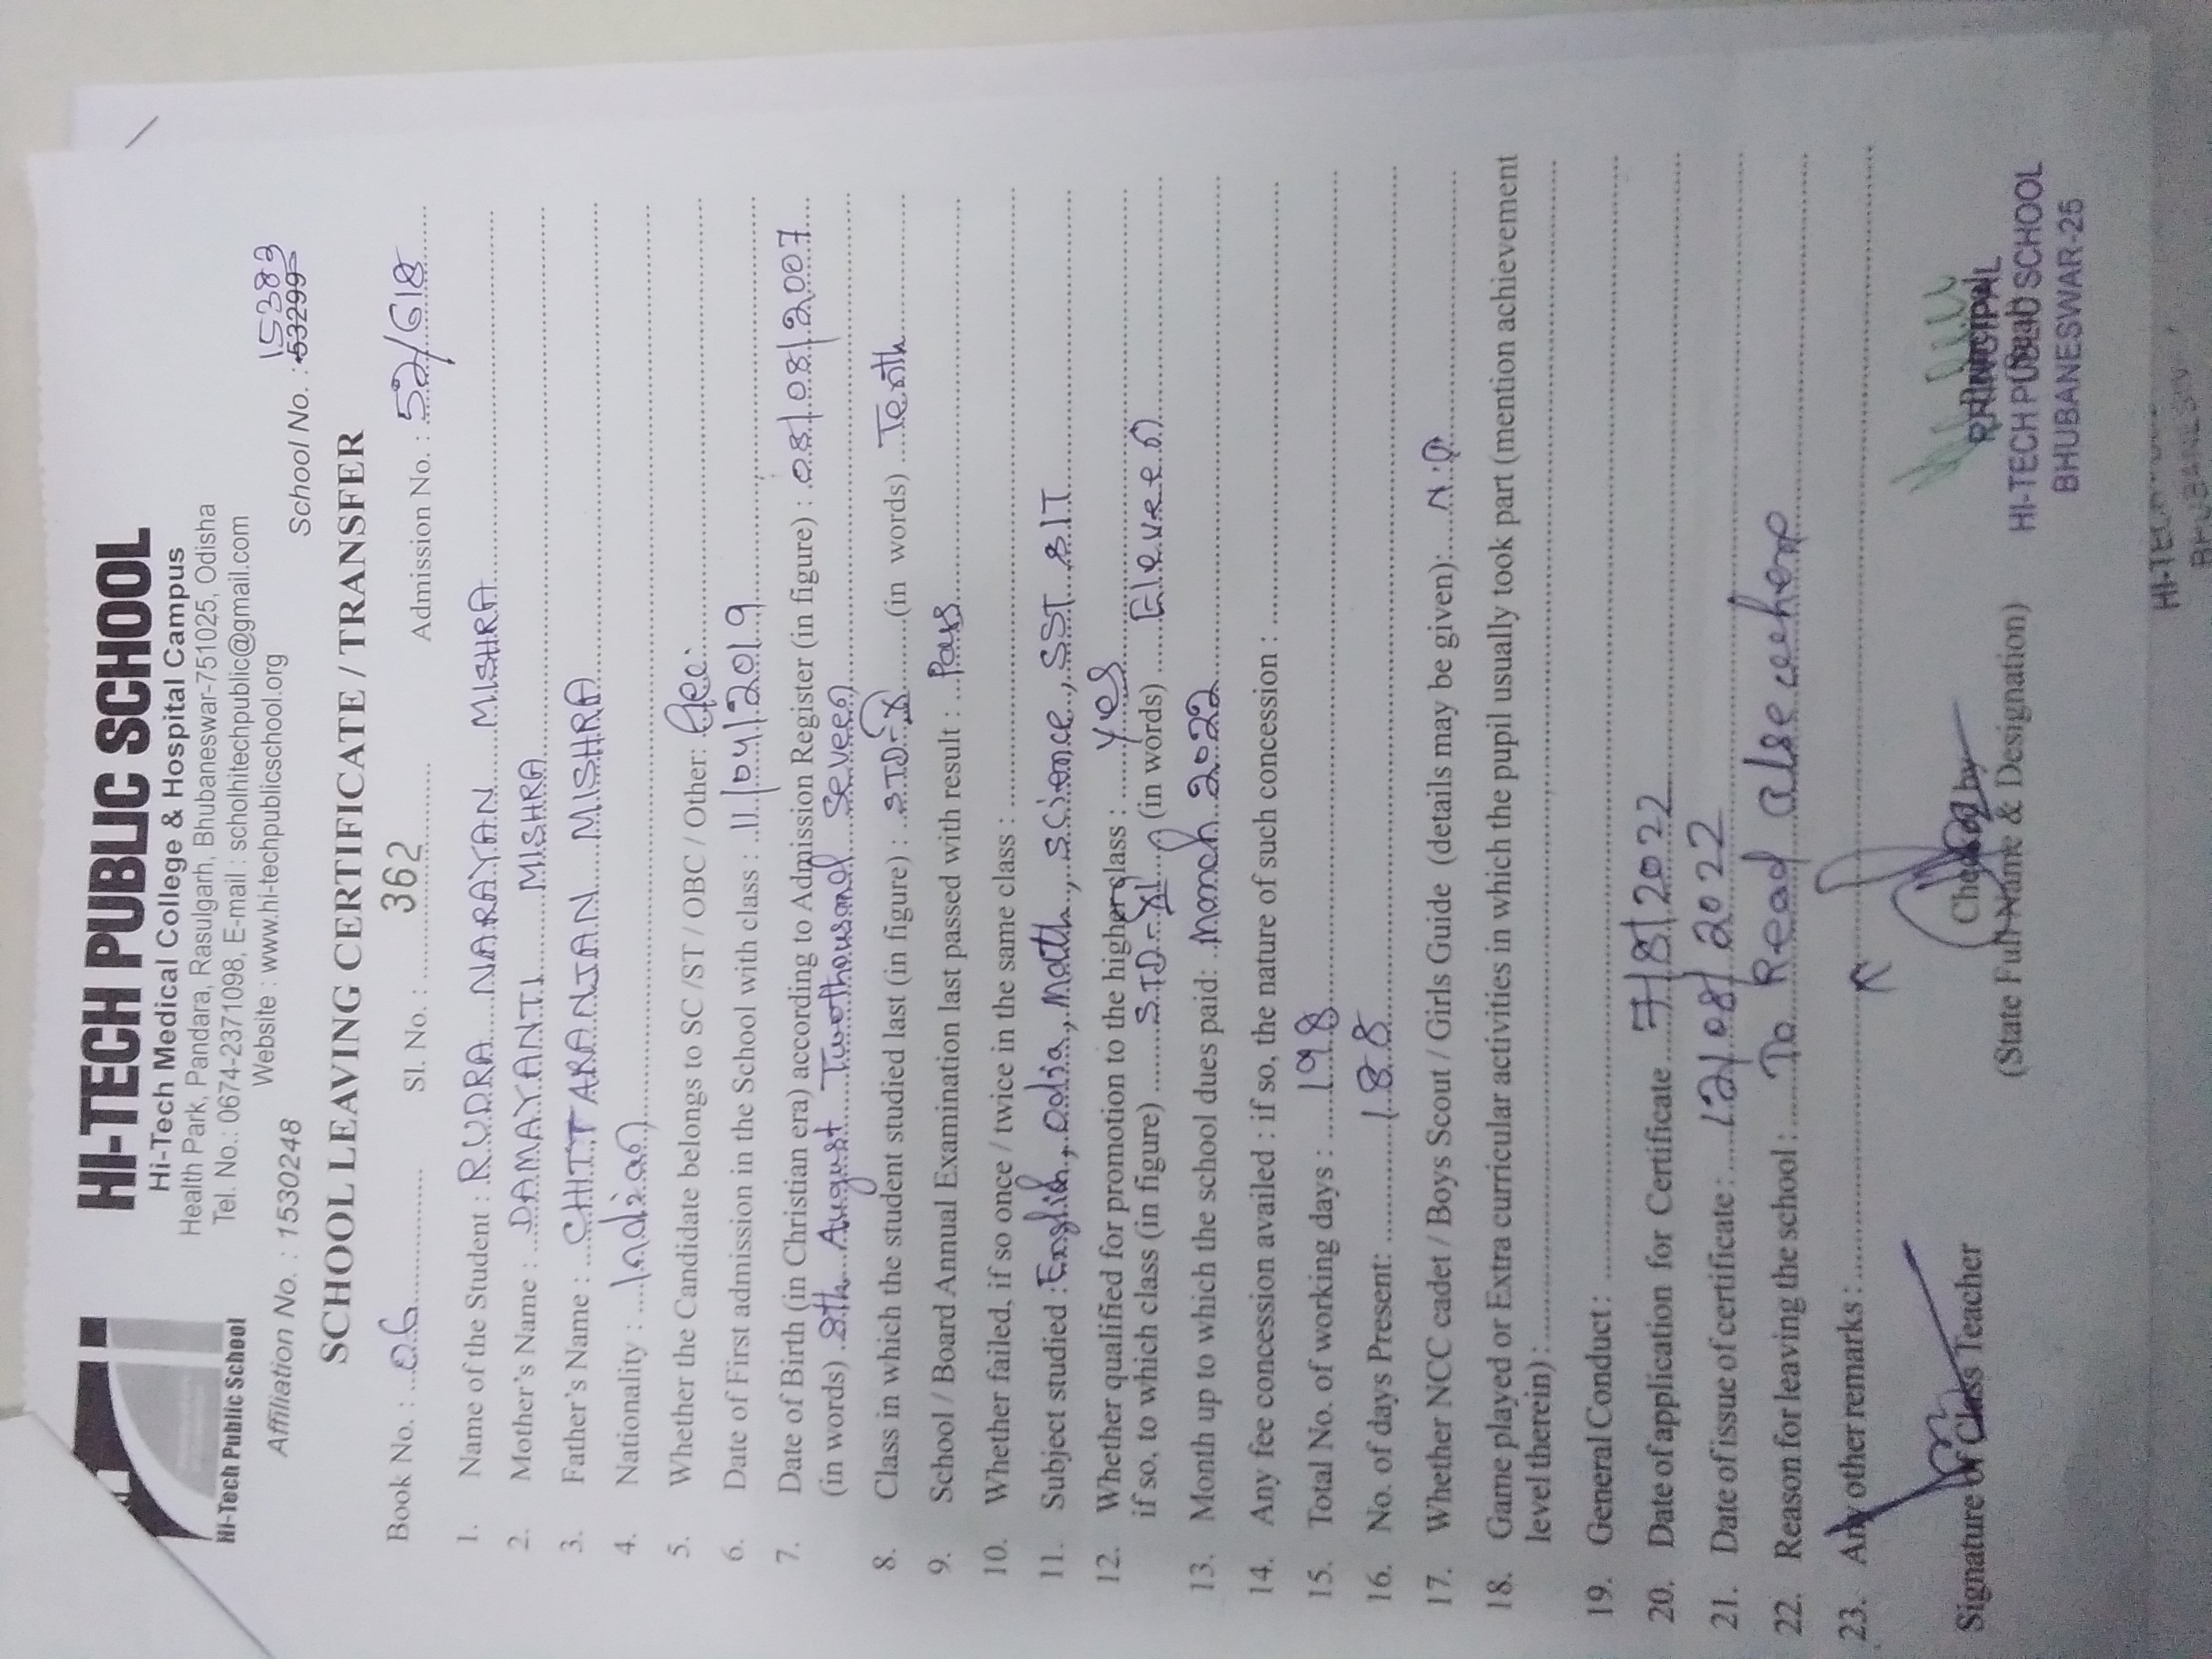 HI-TECH PUBLIC SCHOOL
Hi-Tech Medical College & Hospital Campus
Health Park, Pandara, Rasulgarh, Bhubaneswar-751025, Odisha
Tel. No.: 0674-2371098, E-mail : scholhitechpublic@gmail.com
Website : www.hi-techpublicschool.org
Hi-Tech Public School
Affiliation No. : 1530248 School No. : 53299 15383
SCHOOL LEAVING CERTIFICATE / TRANSFER
Book No. : 06 Sl. No. : 362 Admission No. : 52/618
1. Name of the Student : RUDRA NARAYAN MISHRA
2. Mother's Name : DAMAYANTI MISHRA
3. Father's Name : CHITTARANJAN MISHRA
4. Nationality : Indian
5. Whether the Candidate belongs to SC /ST / OBC / Other:
6. Date of First admission in the School with class : 11/04/2019
7. Date of Birth (in Christian era) according to Admission Register (in figure) : 08/08/2007
(in words) 8th August Twothousand Seven
8. Class in which the student studied last (in figure) : STD-X (in words) Tenth
9. School / Board Annual Examination last passed with result : Pass
10. Whether failed, if so once / twice in the same class :
11. Subject studied : English, Odia, Math, Science, SST
12. Whether qualified for promotion to the higher class : Yes
if so, to which class (in figure) STD-XI (in words) Eleven
13. Month up to which the school dues paid: March 2022
14. Any fee concession availed : if so, the nature of such concession :
15. Total No. of working days : 198
16. No. of days Present: 188
17. Whether NCC cadet / Boys Scout / Girls Guide (details may be given): N.O
18. Game played or Extra curricular activities in which the pupil usually took part (mention achievement
level therein) :
19. General Conduct :
20. Date of application for Certificate 7/8/2022
21. Date of issue of certificate : 12/08/2022
22. Reason for leaving the school : To Read alse where
23. Any other remarks :
Signature of Class Teacher
Checked by
(State Full Name & Designation)
PRINCIPAL
HI-TECH PUBLIC SCHOOL
BHUBANESWAR-25